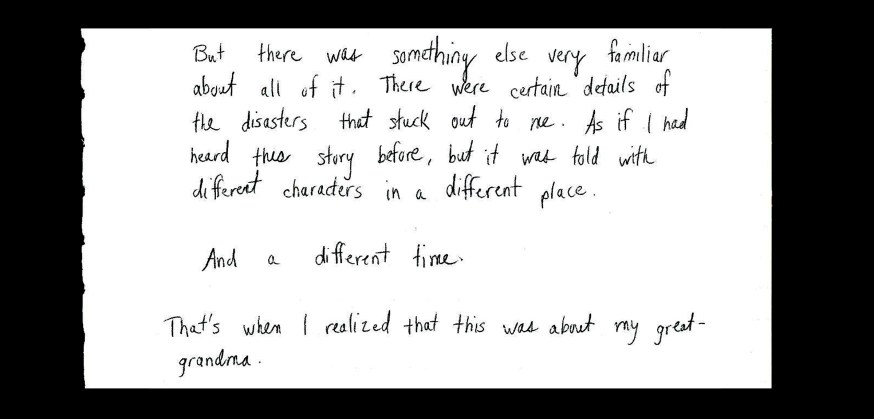 But there was something else very familiar
about all of it. There were certain details of
the disasters that stuck out to me. As if I had
heard this story before, but it was told with
different characters in a different place.
And a different time.
That's when I realized that this was about my great-
grandma.